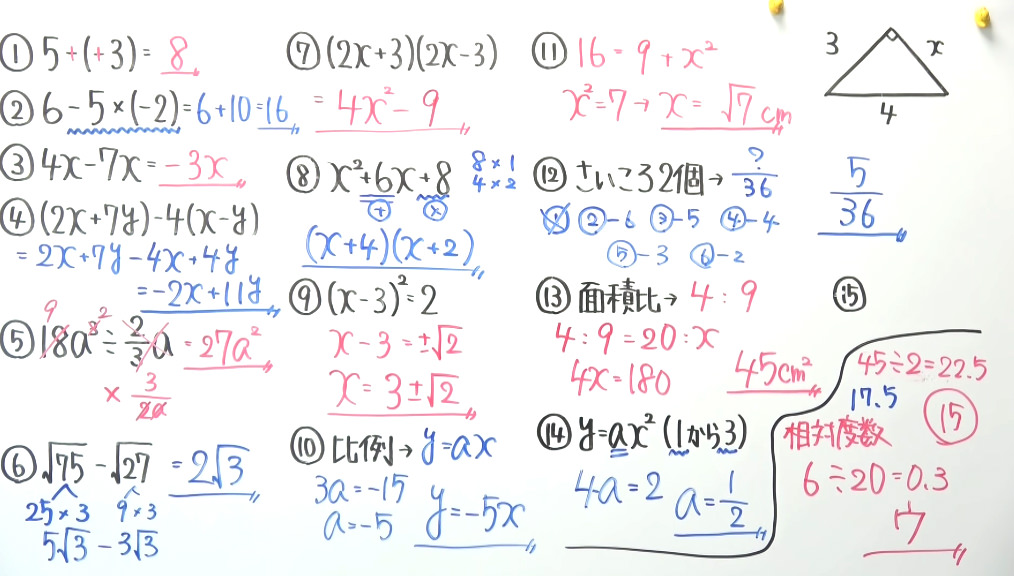 ① 5+(+3)= 8
② 6-5×(-2)=6+10=16
③ 4x-7x=-3x
④ (2x+7y)-4(x-y)
=2x+7y-4x+4y
=-2x+11y
⑤ 18a³÷2/3a=27a²
9 2
×3/2a
⑥ √75-√27=2√3
25×3 9×3
5√3-3√3
⑦ (2x+3)(2x-3)
=4x²-9
⑧ x²+6x+8
8×1
4×2
+ ×
(x+4)(x+2)
⑨ (x-3)²=2
x-3=±√2
x=3±√2
⑩ 比例→y=ax
3a=-15
a=-5
y=-5x
⑪ 16=9+x²
x²=7→x=√7cm
3 x
4
⑫ さいころ2個→?/36
5/36
① ②-6 ③-5 ④-4
⑤-3 ⑥-2
⑬ 面積比→4:9
4:9=20:x
4x=180
45cm²
⑭ y=ax²(1から3)
4a=2
a=1/2
⑮
45÷2=22.5
17.5
⑮
相対度数
6÷20=0.3
ウ